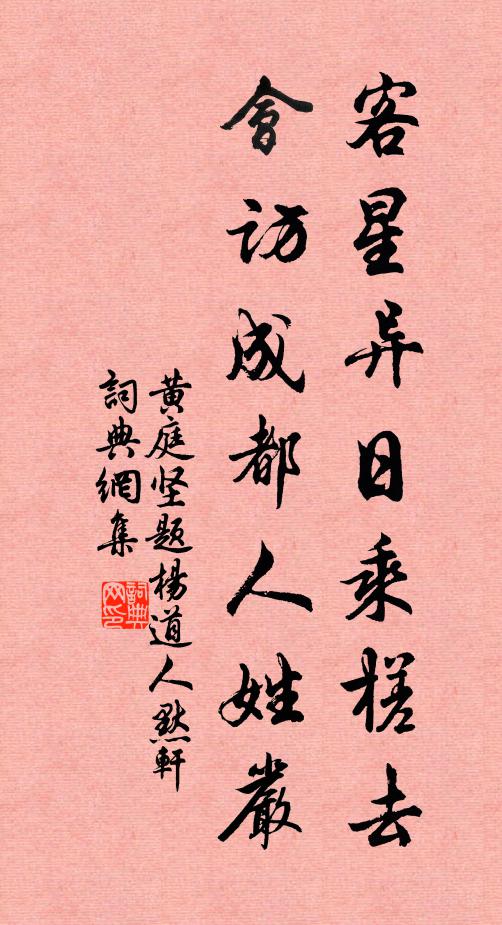 客星异日乘槎去
會訪成都人姓嚴
黄庭坚题楊道人默軒
詞典網集
詞典
网印